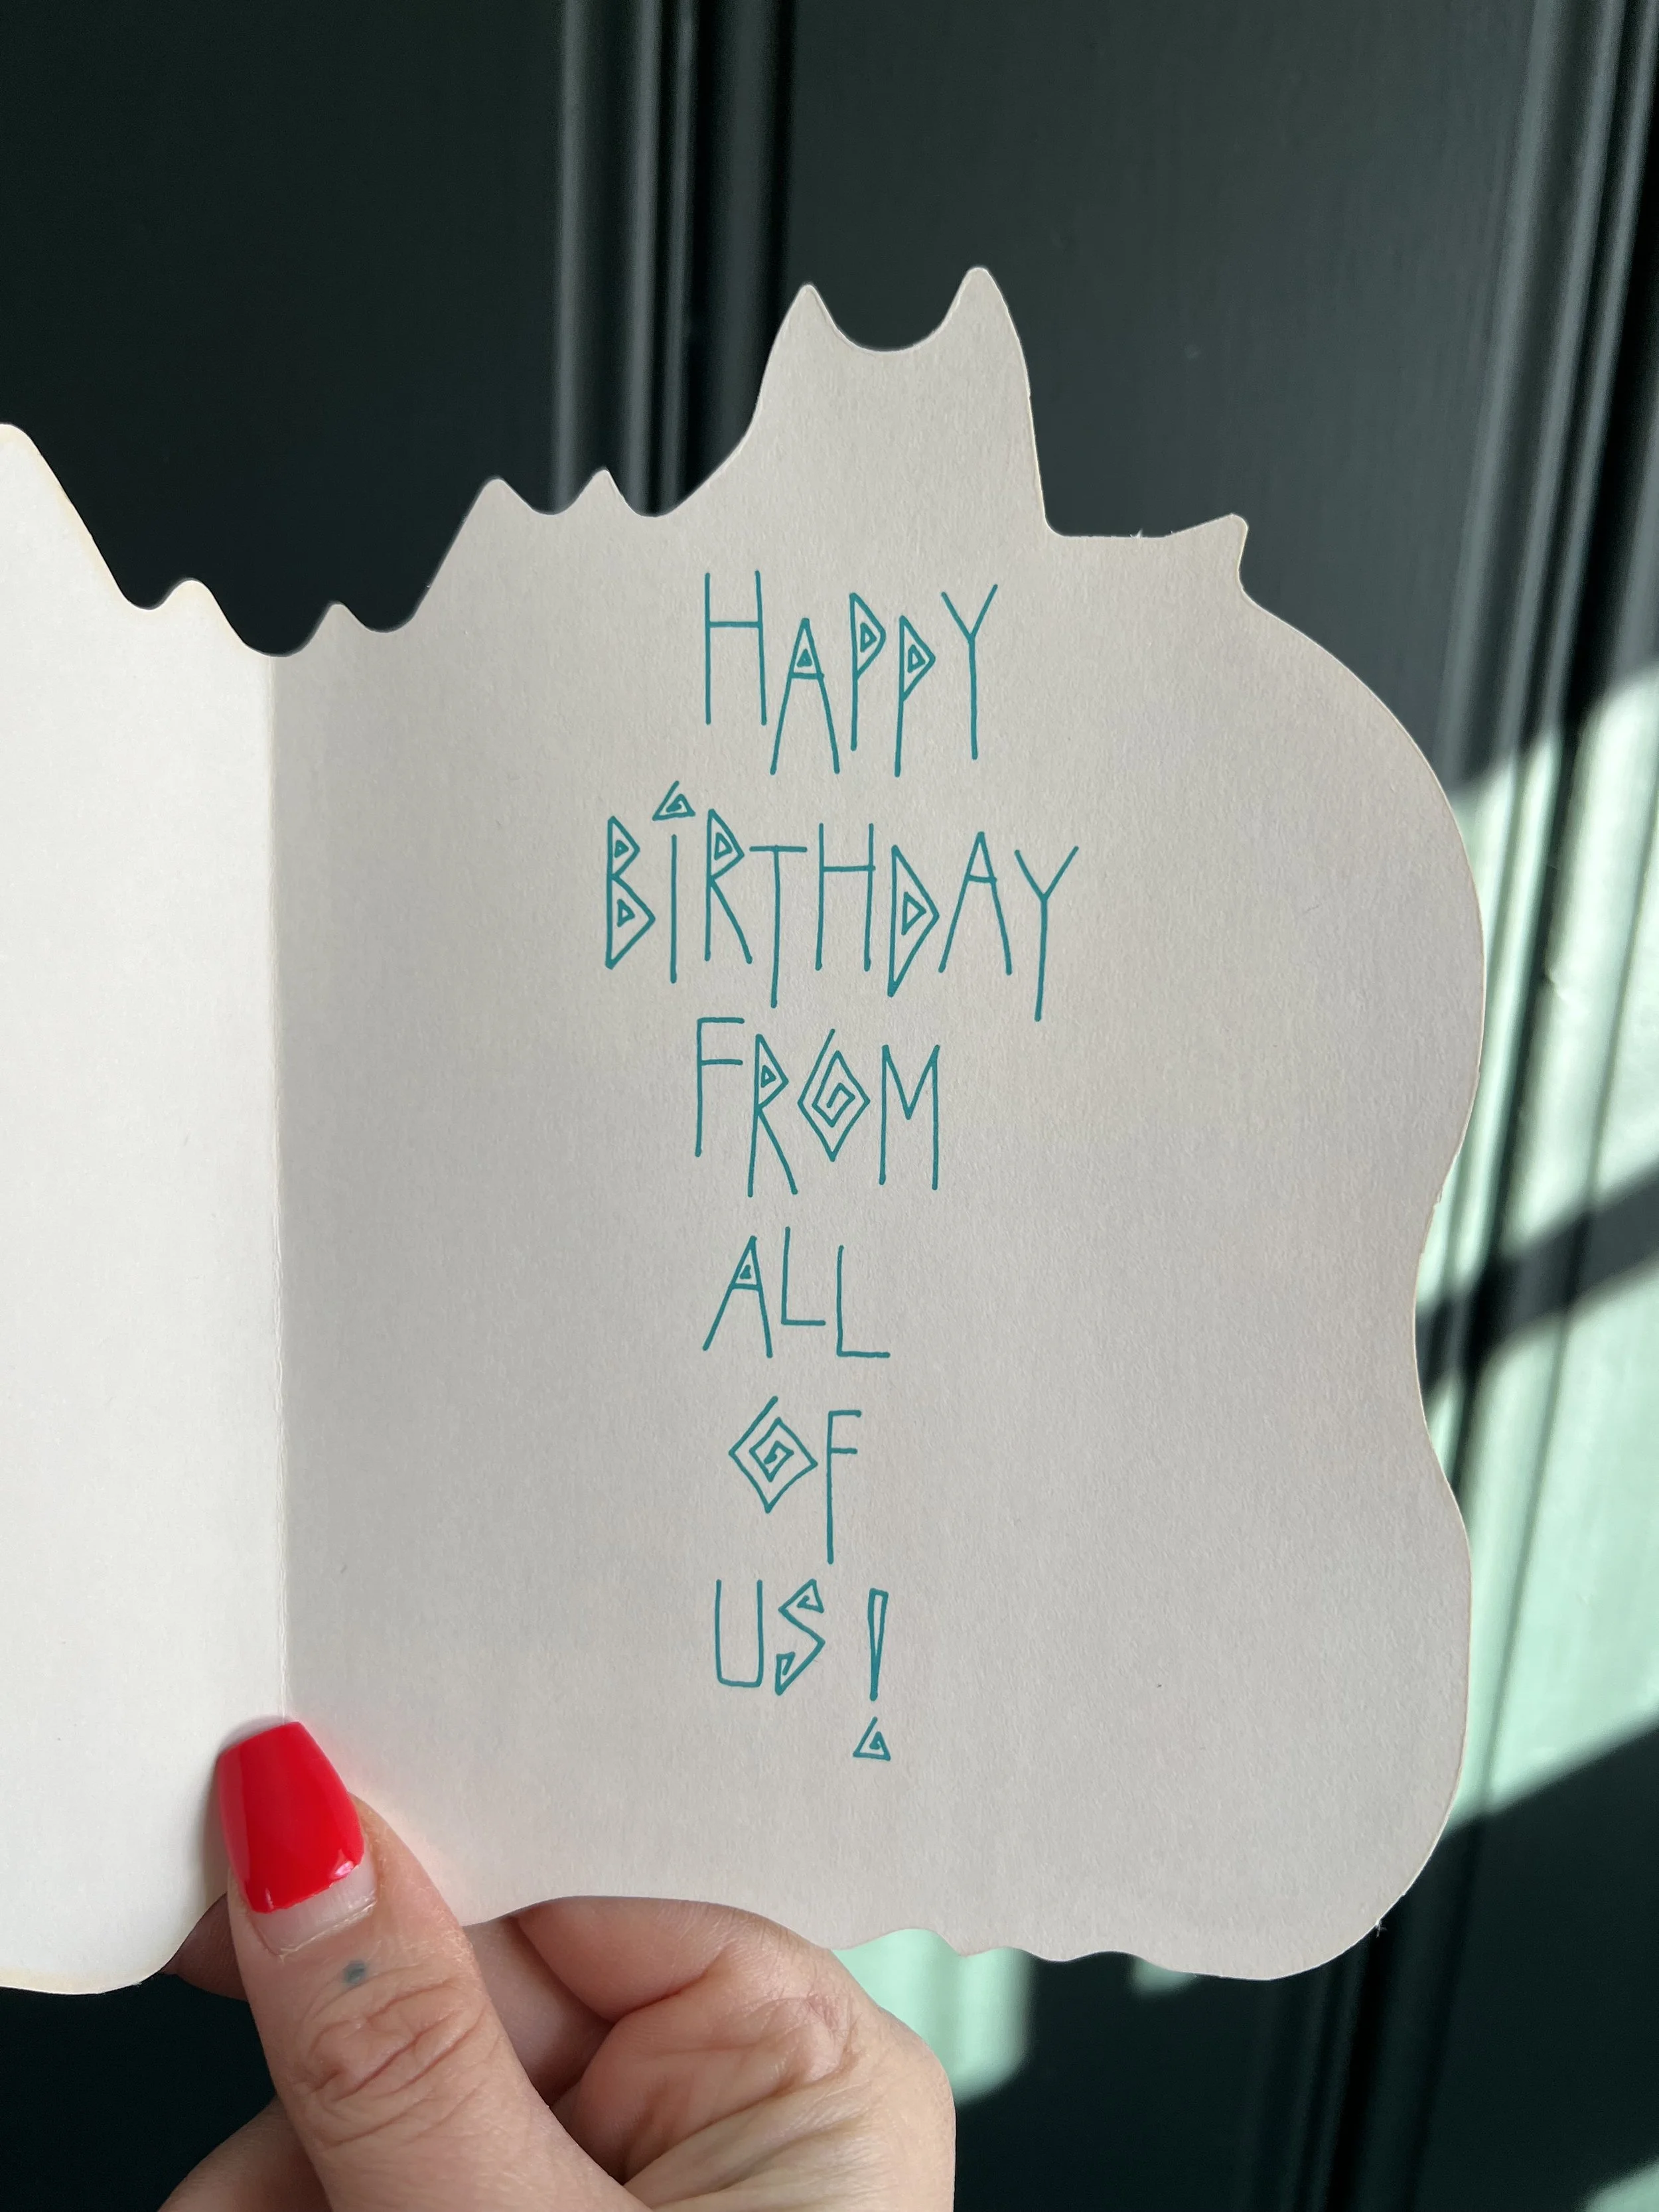 HAPPY
BiRTHDAY
FROM
ALL
OF
US!